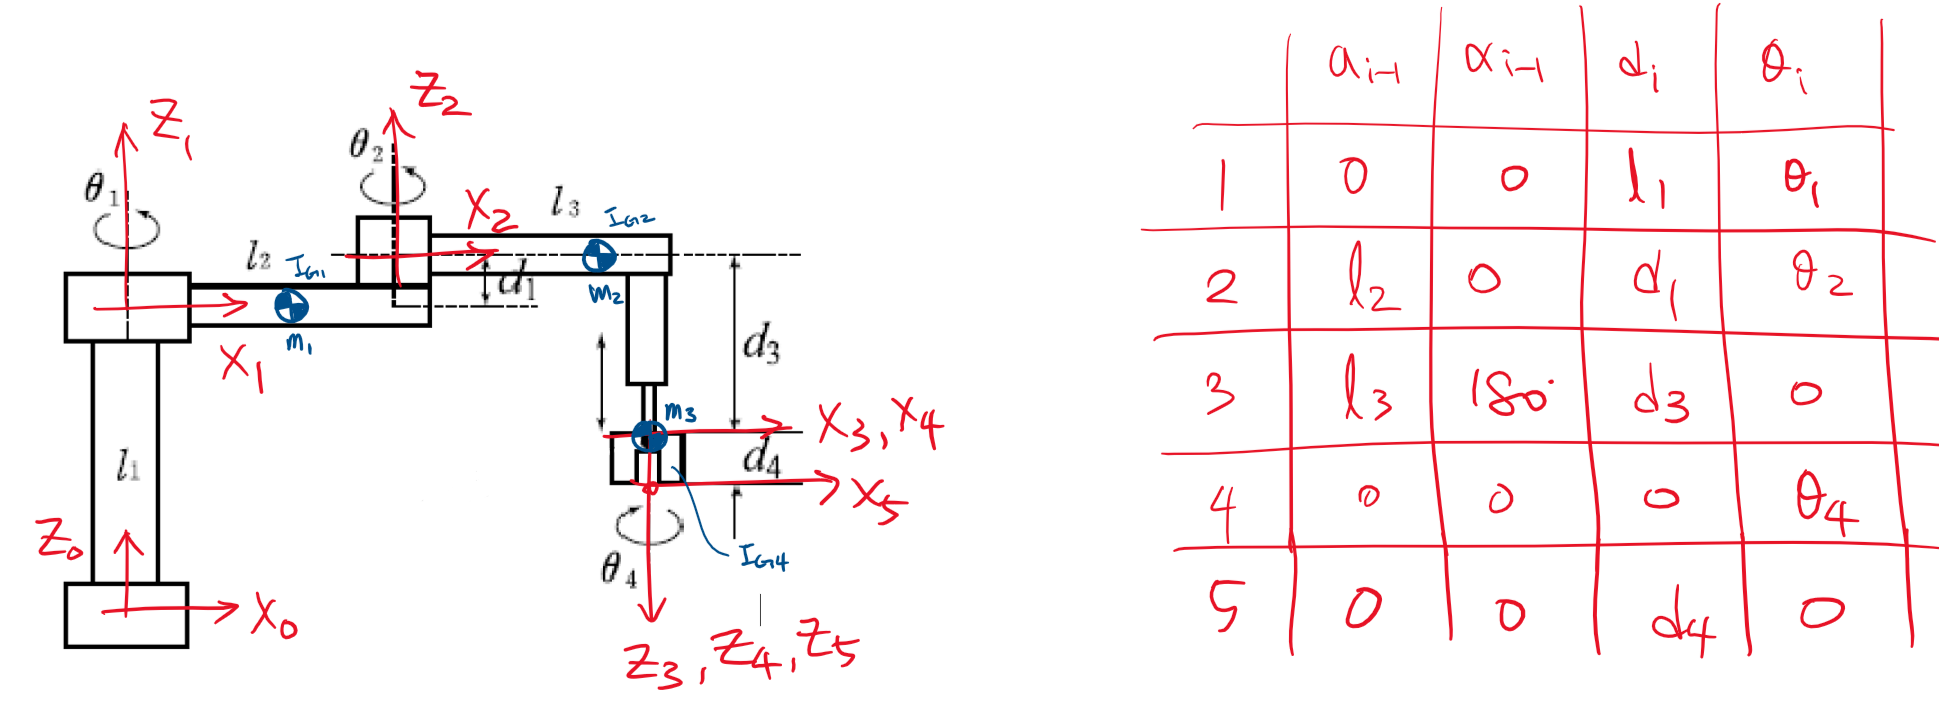 Z₂
Z₁
θ₂
θ₁
X₂
l₃
I_G2
l₂
I_G1
d₁
m₂
m₁
X₁
d₃
m₃
X₃, X₄
l₁
d₄
X₅
Z₀
I_G4
θ₄
X₀
Z₃, Z₄, Z₅
a_i-1 α_i-1 d_i θ_i
1 0 0 l₁ θ₁
2 l₂ 0 d₁ θ₂
3 l₃ 180° d₃ 0
4 0 0 0 θ₄
5 0 0 d₄ 0